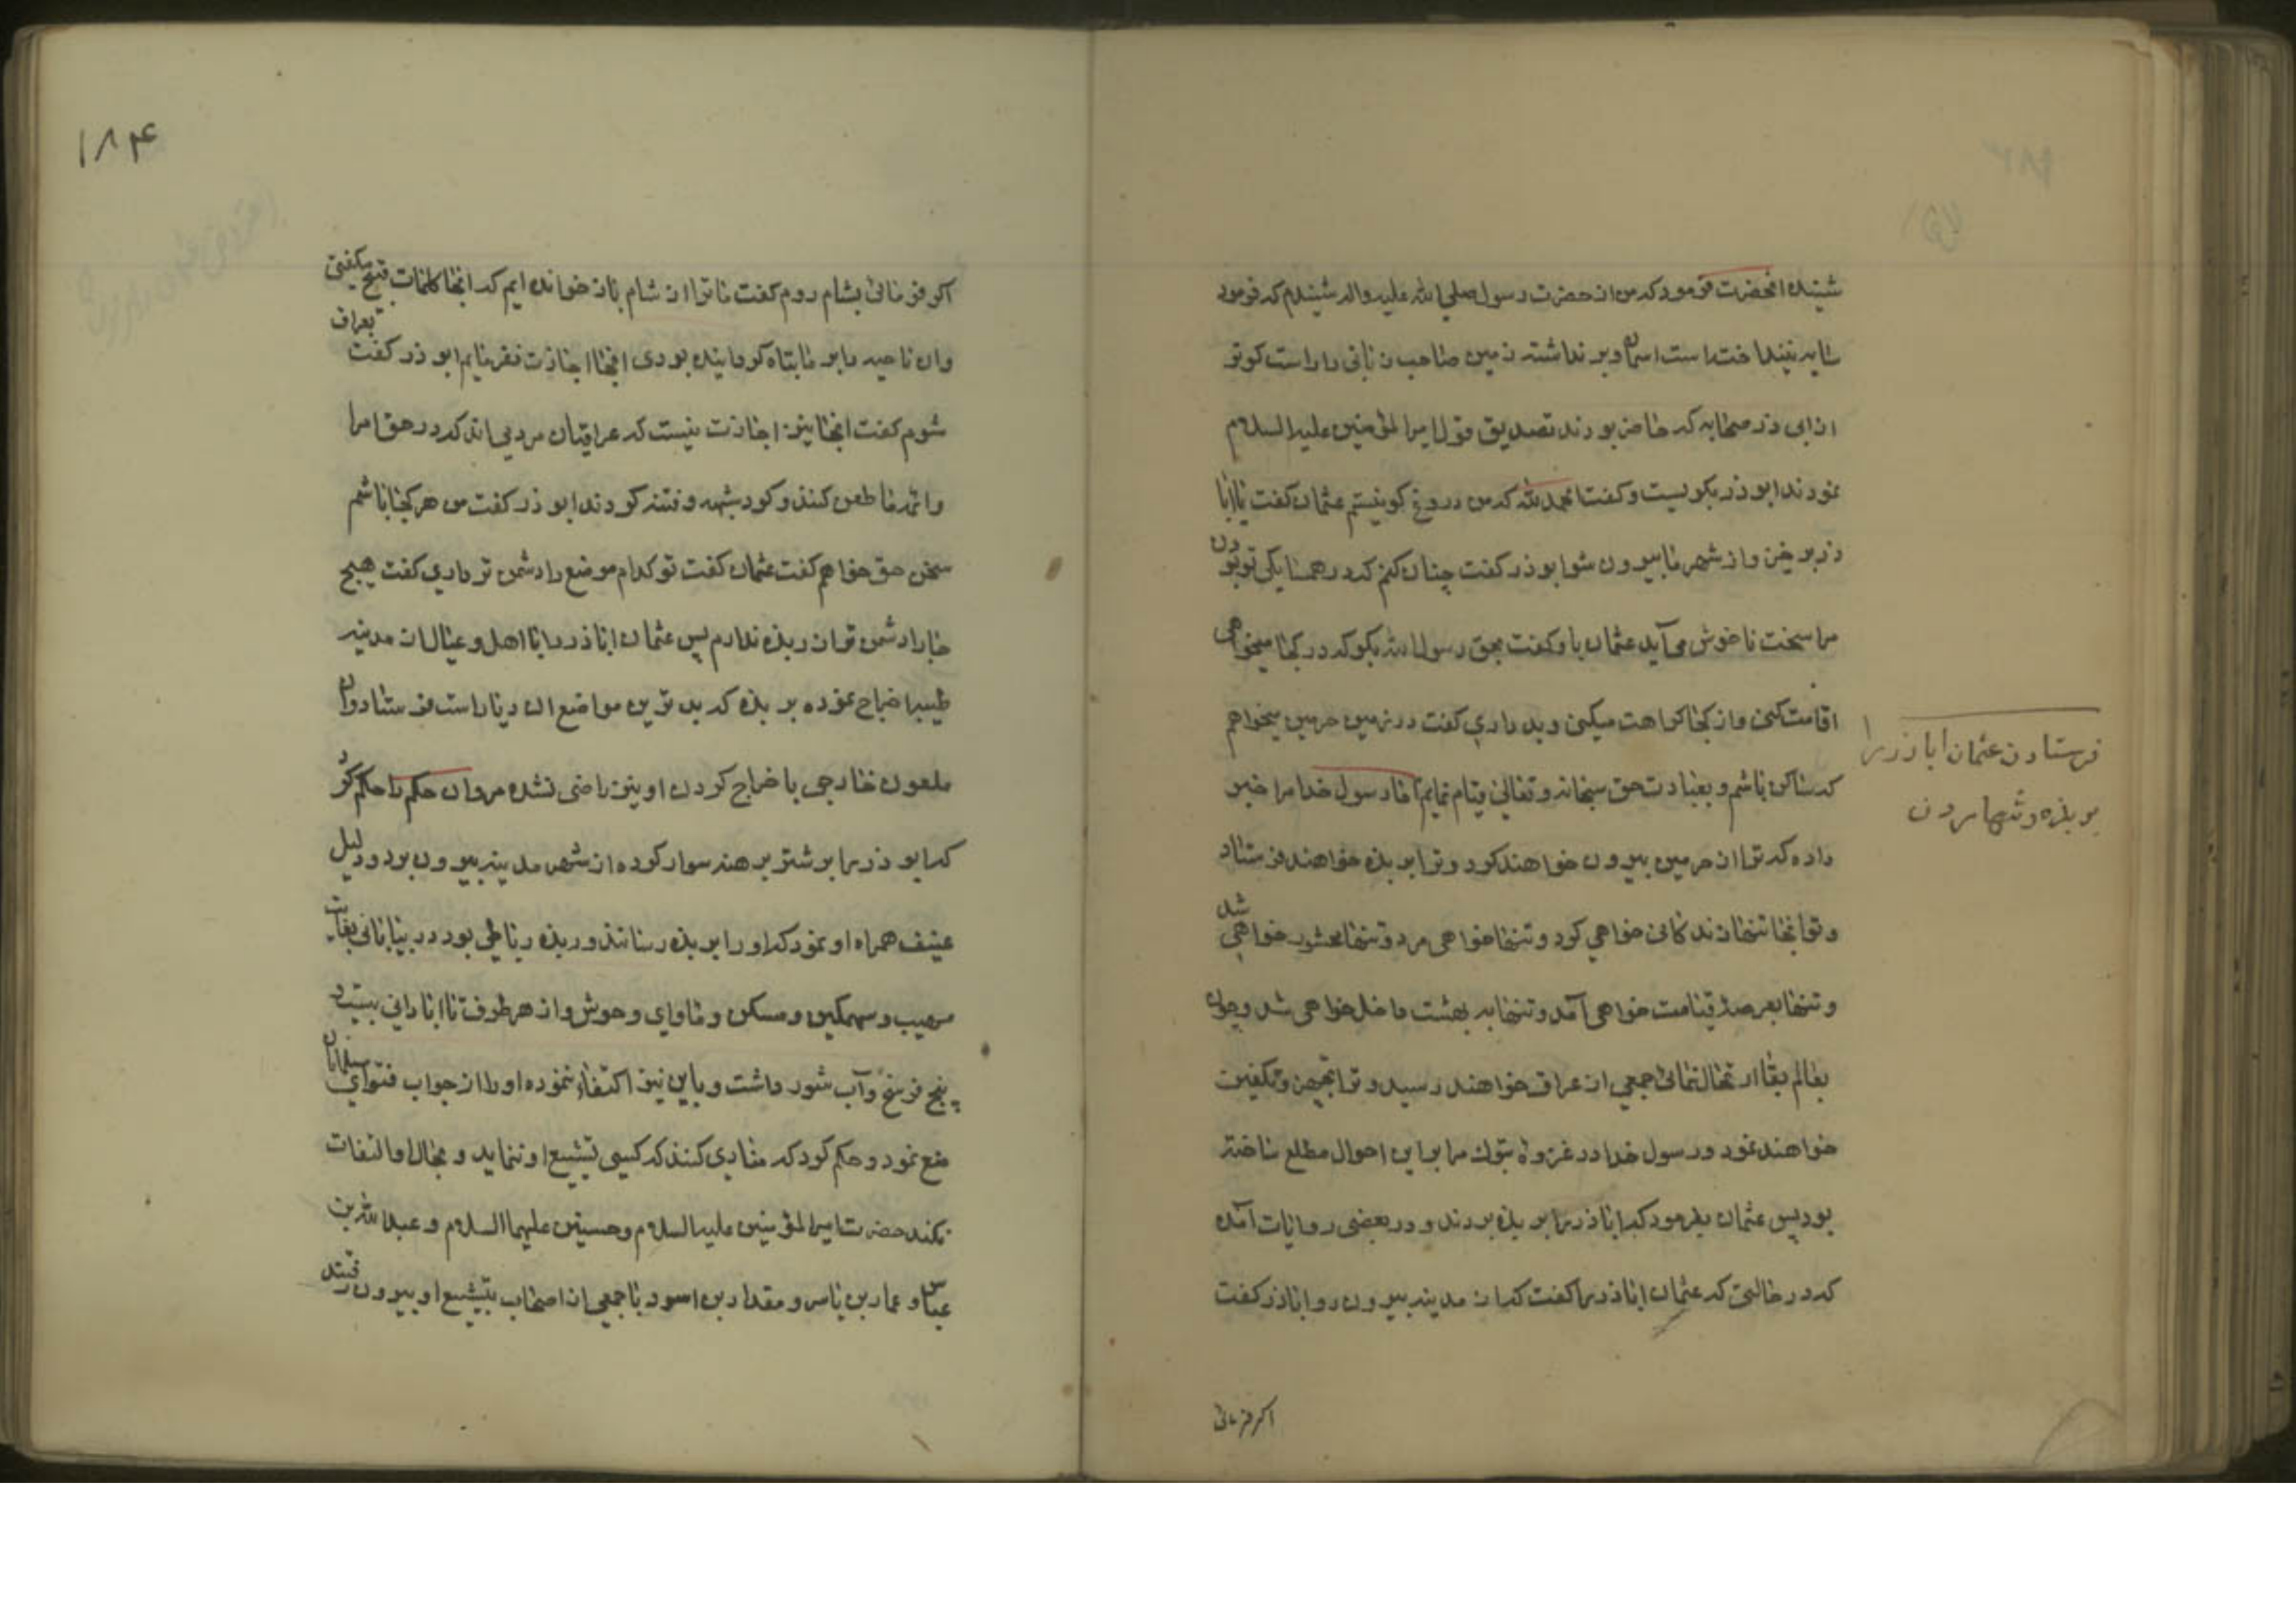 شنیده انحضرت فرمود که من از حضرت رسول صلی الله علیه واله شنیدم که فرمود
سایه نینداخته است اسمان و بر نداشته زمین صاحب زبانی را راست کوتر
از ابی ذر صحابه که حاضر بودند تصدیق قول امیرالمؤمنین علیه السلام
نمودند ابو ذر بگریست و کفت الحمد لله که من دروغ کو نیستم عثمان کفت یا ابا
ذر بر خیز و از شهر ما بیرون شو ابو ذر کفت چنان کنم که در همسایکی تو بودن
مرا سخت ناخوش می آید عثمان با و کفت بحق رسول الله بکو که در کجا میخواهی
اقامت کنی و از کجا کراهت میکنی و بد داری کفت در زمین حرمین میخواهم
که ساکن باشم و بعبادت حق سبحانه و تعالی قیام نمایم اما رسول خدا مرا خبر
داده که ترا از حرمین بیرون خواهند کرد و ترا بر بذه خواهند فرستاد
و تو انجا تنها زندکانی خواهی کرد و تنها خواهی مرد و تنها محشور خواهی شد
و تنها بعرصهٔ قیامت خواهی آمد و تنها به بهشت داخل خواهی شد و چون
بعالم بقا ارتحال نمائی جمعی از عراق خواهند رسید و ترا تجهیز و تکفین
خواهند نمود و رسول خدا در غزوهٔ تبوک مرا بر این احوال مطلع ساخته
بود پس عثمان بفرمود که ابا ذر را بر بذه بردند و در بعضی روایات آمده
که در حالتی که عثمان ابا ذر را کفت که از مدینه بیرون رو ابا ذر کفت
اکر فرمائی
فرستادن عثمان ابا ذر را
بر بذه و تنها مردن
۱۸۴
اکر فرمائی بشام روم کفت ما ترا از شام باز خوانده ایم که انجا کلمات قبیح میکفتی
وان ناحیه را بر ما تباه کردانیده بودی انجا اجازت نفرمایم ابو ذر کفت بعراق
شوم کفت انجا نیز اجازت نیست که عراقیان مردمی اند که در حق امرا
و ائمه ما طعن کنند و کرد شبهه و فتنه کردند ابو ذر کفت من هر کجا باشم
سخن حق خواهم کفت عثمان کفت تو کدام موضع را دشمن تر داری کفت هیچ
جا را دشمن تر از ربذه ندارم پس عثمان ابا ذر را با اهل و عیال از مدینه
طیبه اخراج نموده بر بذه که بد ترین مواضع ان دیار است فرستاد وان
ملعون خارجی با خراج کردن او نیز راضی نشده مروان حکم را حکم کرد
که ابو ذر را بر شتر برهنه سوار کرده از شهر مدینه بیرون برد و دلیل
عنیف همراه او نمود که او را بر بذه رسانند و ربذه رباطی بود در بیابانی بغایت
مهیب و سهمکین و مسکن و ماوای وحوش و از هر طرف تا ابادانی بیست و
پنج فرسخ و آب شور داشت و باین نیز اکتفاء ننموده او را از جواب فتوای مسلمانان
منع نمود و حکم کرد که منادی کنند که کسی تشییع او ننماید و بحال او التفات
نکند حضرت امیرالمؤمنین علیه السلام و حسنین علیهما السلام و عبدالله بن
عباس و عمار بن یاسر و مقداد بن اسود با جمعی از اصحاب بتشییع او بیرون رفتند